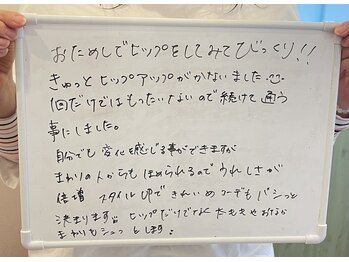 おためしでヒップをしてみてびっくり!!
きゅっとヒップアップがかないました
1回だけではもったいないので続けて通う
事にしました。
自分でも変化を感じる事ができますが
まわりの人からもほめられるのでうれしさが
倍増 スタイルUPできれいめコーデもバシっと
決まります ヒップだけでなく
まわりもシュッとします。